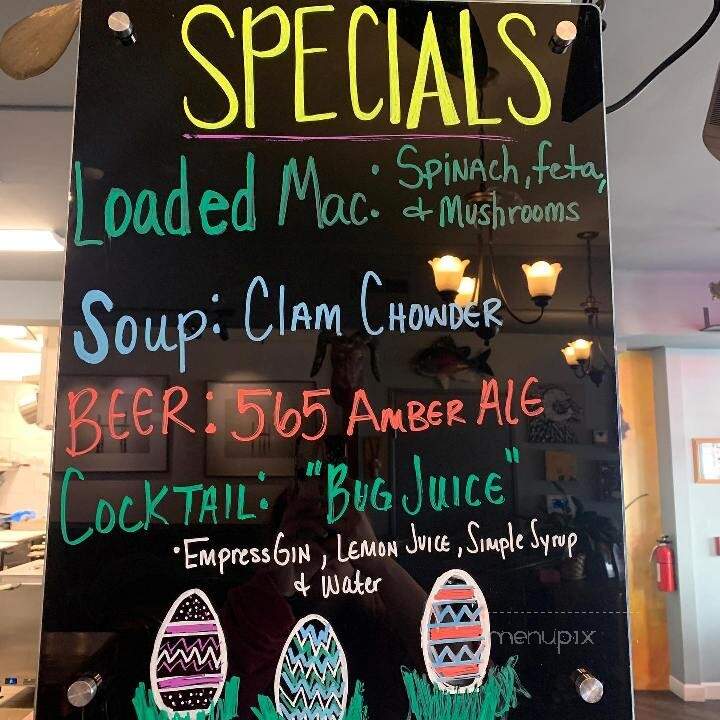 SPECIALS
Loaded Mac: Spinach, feta,
& Mushrooms
Soup: Clam Chowder
BEER: 565 AMBER ALE
COCKTAIL: "BUG JUICE"
•Empress Gin, Lemon Juice, Simple Syrup
& Water
menupix